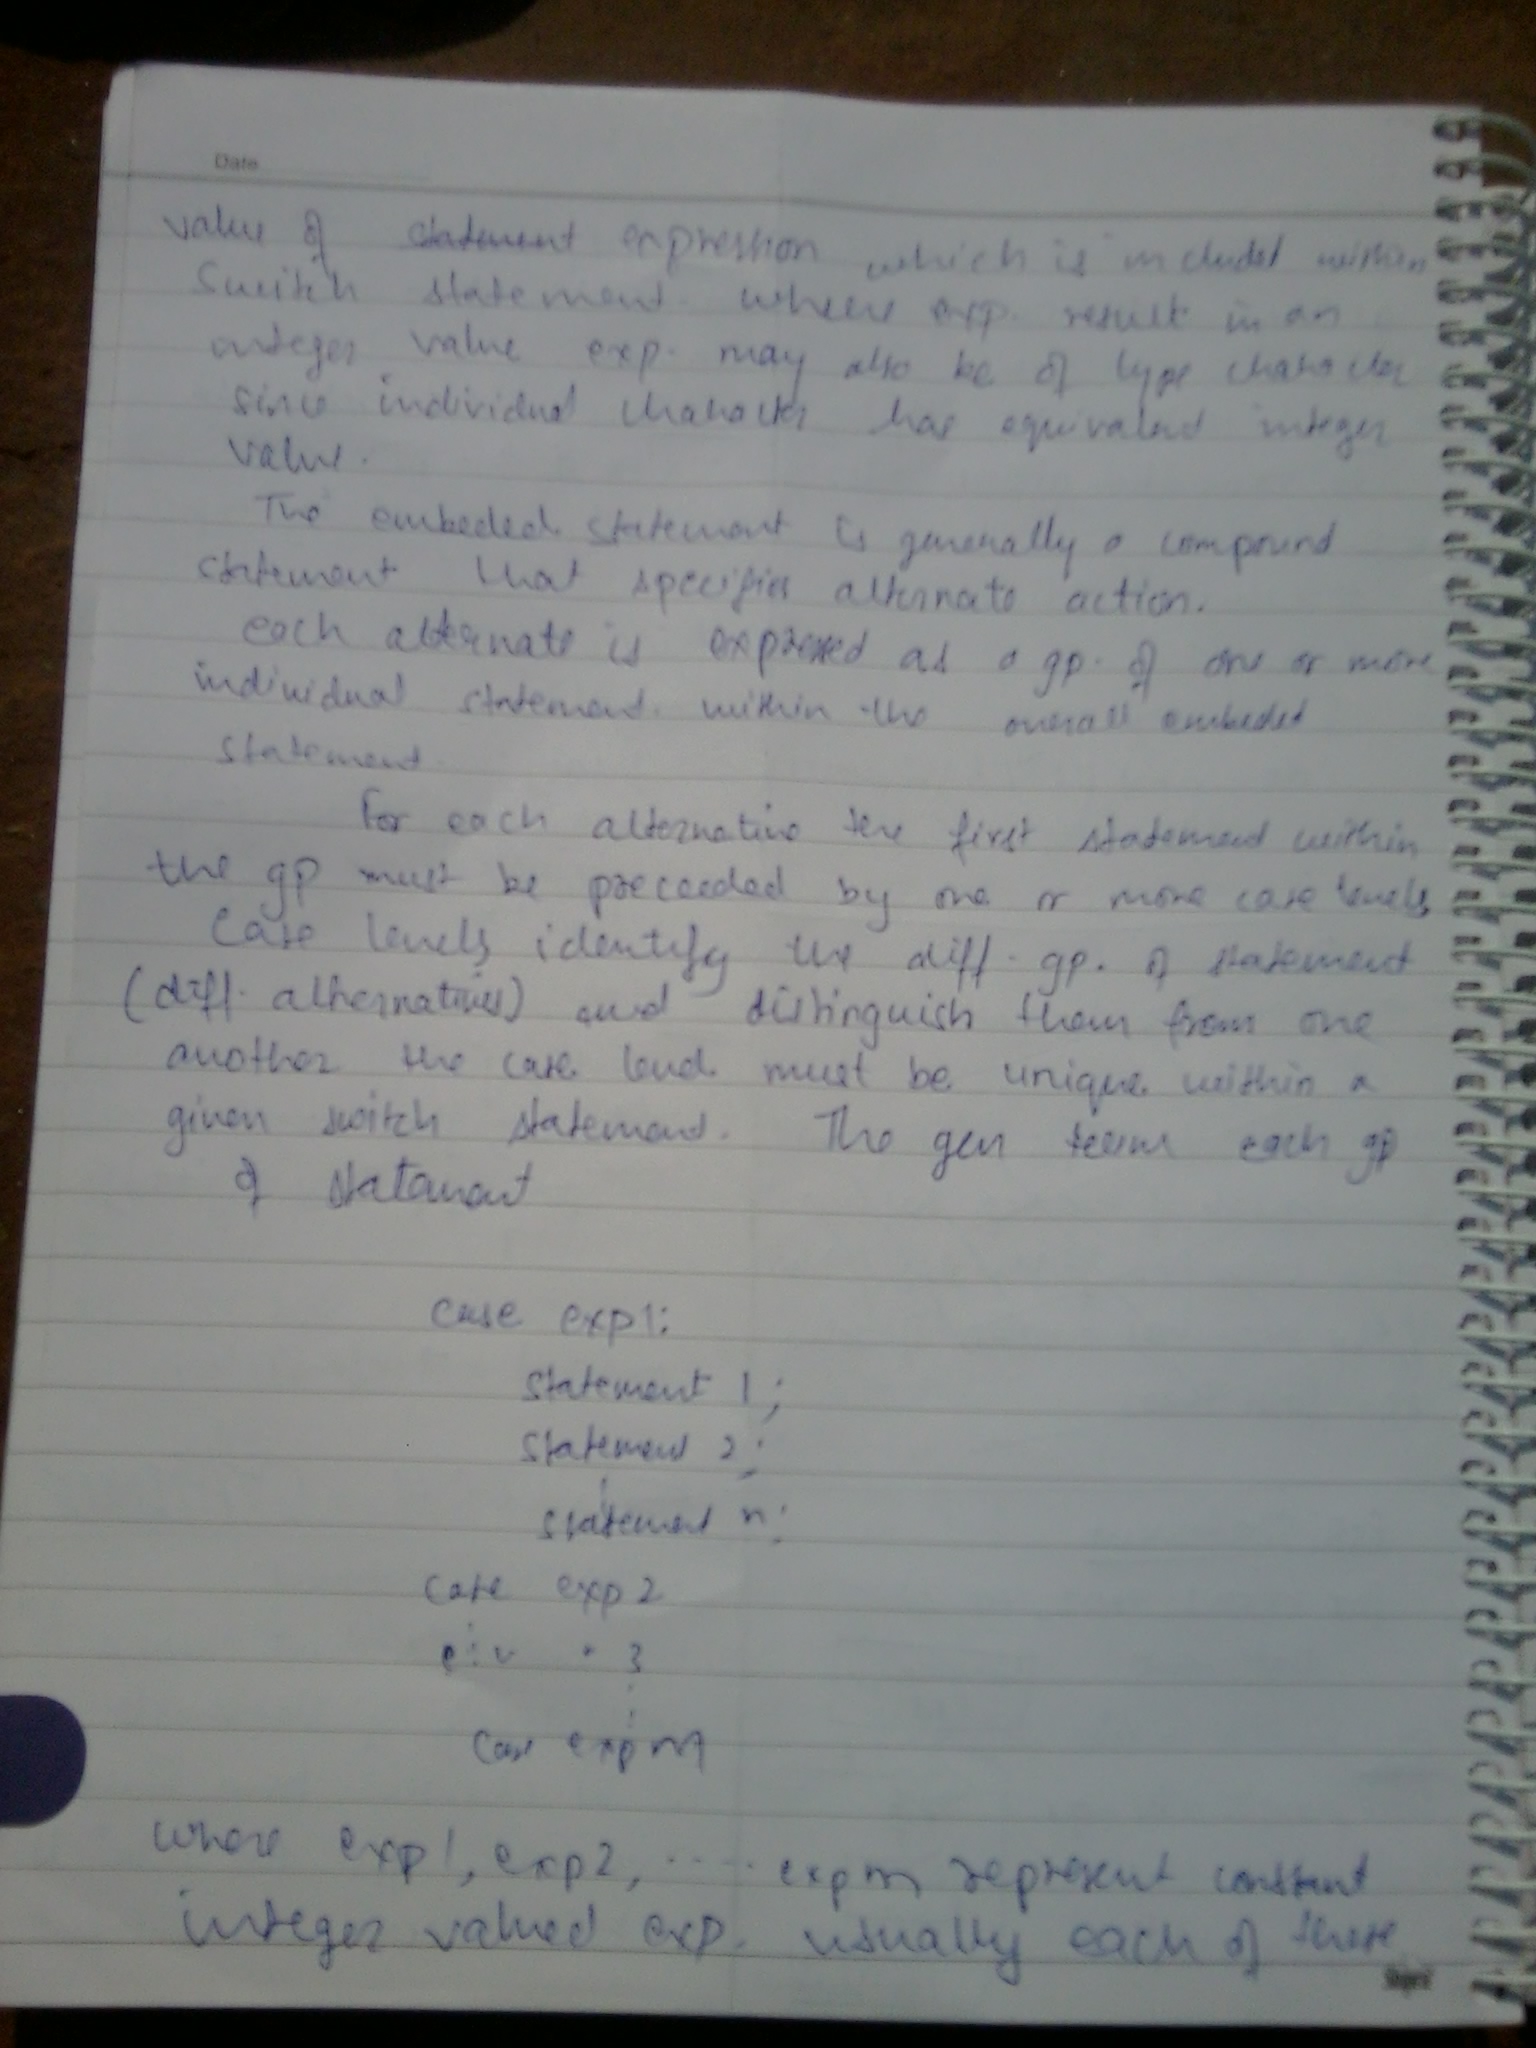 Date
value of statement expression which is included within
Switch statement. where exp. result in an
integer value exp. may also be of type character
since individual character has equivalent integer
value.
The embeded statement is generally a compound
statement that specifies alternate action.
each alternate is expressed as a gp. of one or more
individual statement. within the overall embeded
statement.
For each alternative the first statement within
the gp must be preceeded by one or more case levels
Case levels identify the diff. gp. of statement
(diff. alternatives) and distinguish them from one
another the case level must be unique within a
given switch statement. The gen term each gp
of statement
case exp1:
statement 1;
statement 2;
statement n;
case exp2
3
case exp m
where exp1, exp2, ..... exp m represent constant
integer valued exp. usually each of these